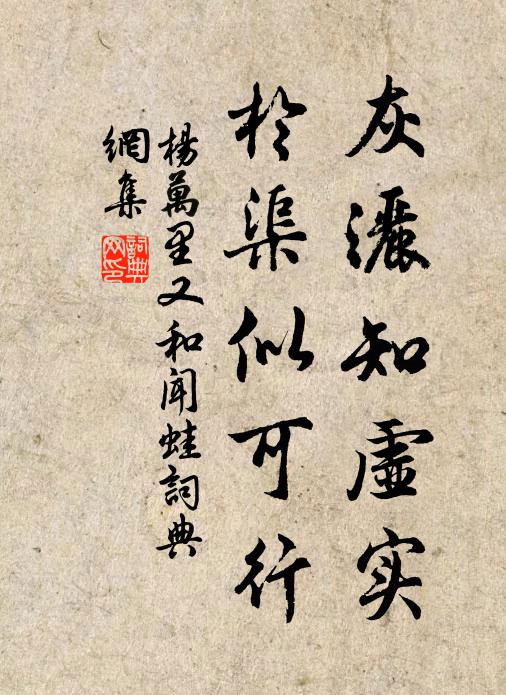 灰灑知虛实
於渠似可行
楊萬里又和聞蛙詞典
網集
詞典
网印